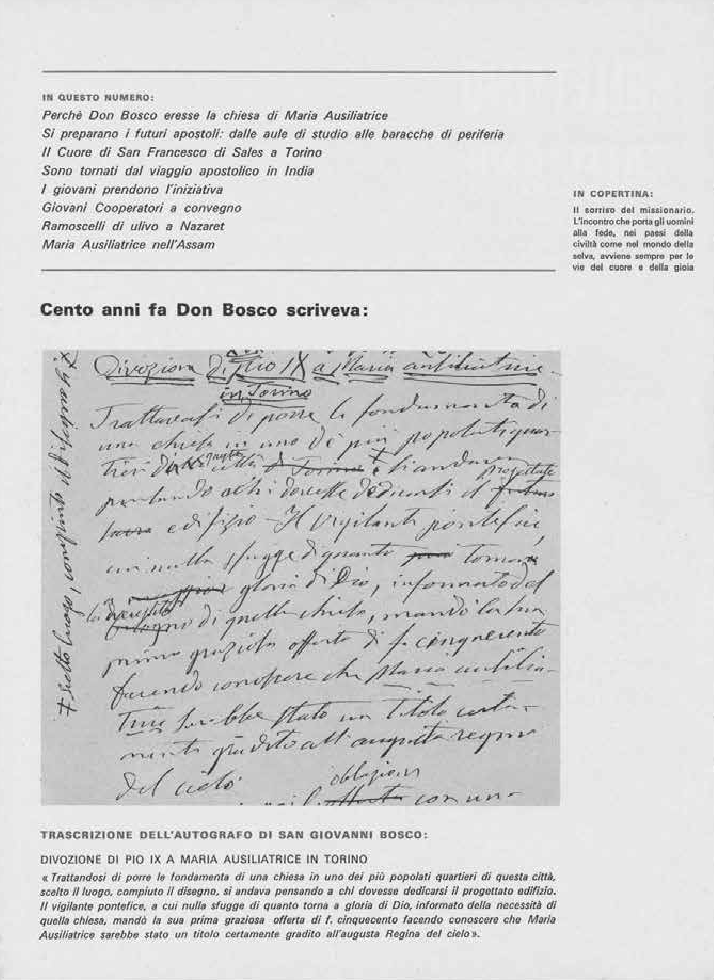 IN QUESTO NUMERO:
Perchè Don Bosco eresse la chiesa di Maria Ausiliatrice
Si preparano i futuri apostoli: dalle aule di studio alle baracche di periferia
Il Cuore di San Francesco di Sales a Torino
Sono tornati dal viaggio apostolico in India
I giovani prendono l'iniziativa
Giovani Cooperatori a convegno
Ramoscelli di ulivo a Nazaret
Maria Ausiliatrice nell'Assam
IN COPERTINA:
Il sorriso del missionario.
L'incontro che porta gli uomini
alla fede, nei paesi della
civiltà come nel mondo della
selva, avviene sempre per le
vie del cuore e della gioia
Cento anni fa Don Bosco scriveva:
Divozione di Pio IX a Maria ausiliatrice
in Torino
Trattavasi di porre le fondamenta di
una chiesa in uno de' più popolati quar-
tieri di questa città di Torino + e si andava
progettato
pensando a chi dovesse dedicarsi il futuro
edifizio - Il vigilante pontefice,
cui nulla sfugge di quanto torna
gloria di Dio, informato del
la necessità
bisogno di quella chiesa, mandò la sua
prima graziosa offerta di f. cinquecento
facendo conoscere che Maria ausilia-
trice sarebbe stato un titolo certa-
mente gradito all'augusta regina
del cielo
oblazione
con una
+ scelto luogo, compiuto il disegno, +
TRASCRIZIONE DELL'AUTOGRAFO DI SAN GIOVANNI BOSCO:
DIVOZIONE DI PIO IX A MARIA AUSILIATRICE IN TORINO
« Trattandosi di porre le fondamenta di una chiesa in uno dei più popolati quartieri di questa città,
scelto il luogo, compiuto il disegno, si andava pensando a chi dovesse dedicarsi il progettato edifizio.
Il vigilante pontefice, a cui nulla sfugge di quanto torna a gloria di Dio, informato della necessità di
quella chiesa, mandò la sua prima graziosa offerta di f. cinquecento facendo conoscere che Maria
Ausiliatrice sarebbe stato un titolo certamente gradito all'augusta Regina del cielo ».